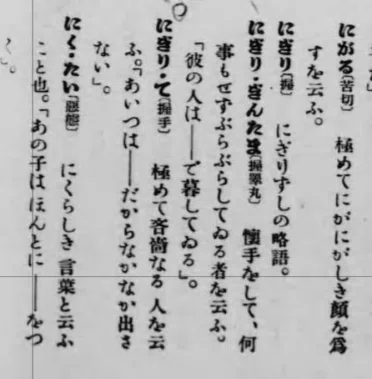 にがる〔苦切〕　極めてにがにがしき顔を爲
すを云ふ。
にぎり〔握〕　にぎりずしの略語。
にぎり・ぎんたま〔握睾丸〕　懷手をして、何
事もせずぶらぶらしてゐる者を云ふ。
「彼の人は――で暮してゐる」。
にぎり・て〔握手〕　極めて吝嗇なる人を云
ふ。「あいつは――だからなかなか出さ
ない」。
にく・たい〔惡態〕　にくらしき言葉と云ふ
こと也。「あの子はほんとに――をつ
く」。